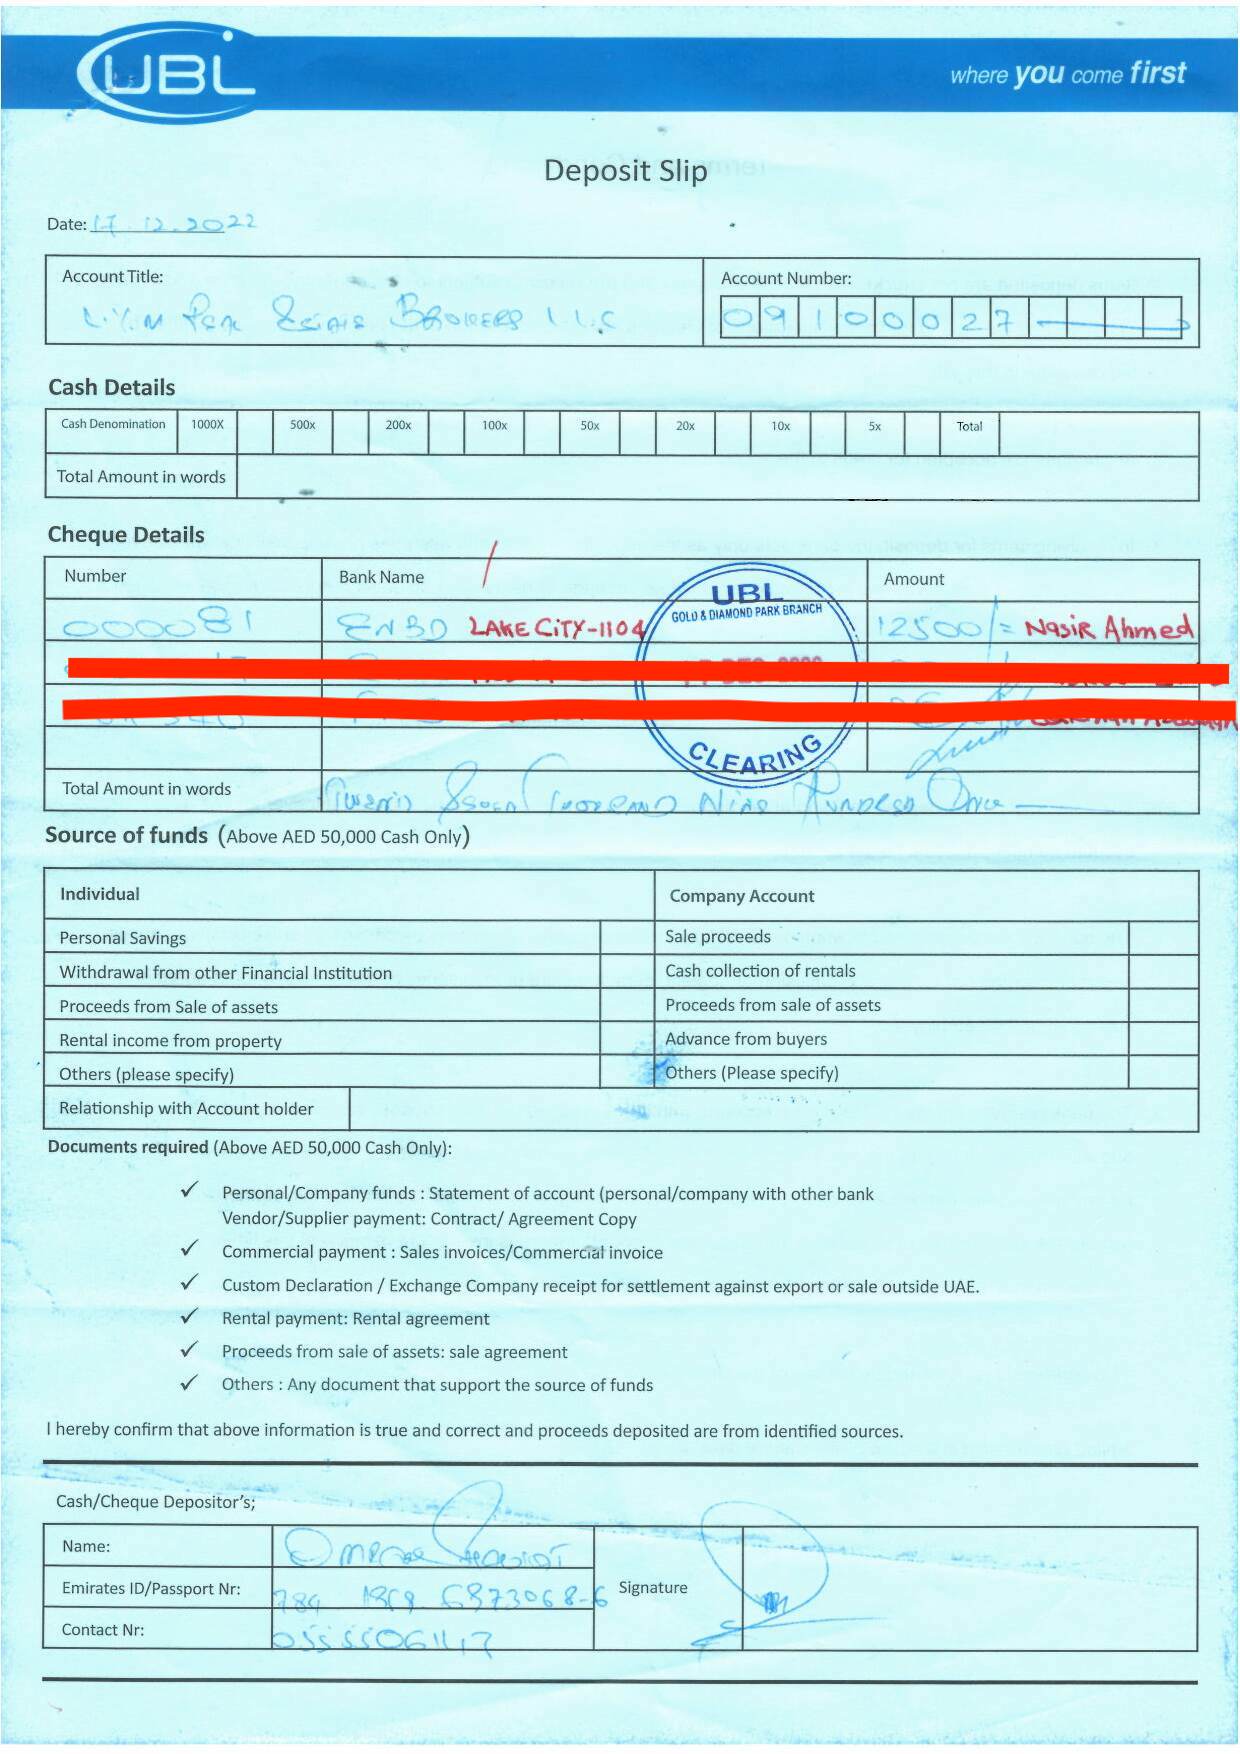 UBL
where you come first
Deposit Slip
Date: 17.12.2022
Account Title:
Account Number:
BROKERS L.L.C
09100027
Cash Details
Cash Denomination 1000X 500x 200x 100x 50x 20x 10x 5x Total
Total Amount in words
Cheque Details
Number Bank Name Amount
UBL
GOLD & DIAMOND PARK BRANCH
000081 ENBD LAKE CITY-1104 12500/= Nasir Ahmed
CLEARING
Total Amount in words Twenty Seven Thousand Nine Hundred Only
Source of funds (Above AED 50,000 Cash Only)
Individual Company Account
Personal Savings Sale proceeds
Withdrawal from other Financial Institution Cash collection of rentals
Proceeds from Sale of assets Proceeds from sale of assets
Rental income from property Advance from buyers
Others (please specify) Others (Please specify)
Relationship with Account holder
Documents required (Above AED 50,000 Cash Only):
✓ Personal/Company funds : Statement of account (personal/company with other bank
Vendor/Supplier payment: Contract/ Agreement Copy
✓ Commercial payment : Sales invoices/Commercial invoice
✓ Custom Declaration / Exchange Company receipt for settlement against export or sale outside UAE.
✓ Rental payment: Rental agreement
✓ Proceeds from sale of assets: sale agreement
✓ Others : Any document that support the source of funds
I hereby confirm that above information is true and correct and proceeds deposited are from identified sources.
Cash/Cheque Depositor's;
Name:
Emirates ID/Passport Nr:
Signature
Contact Nr: